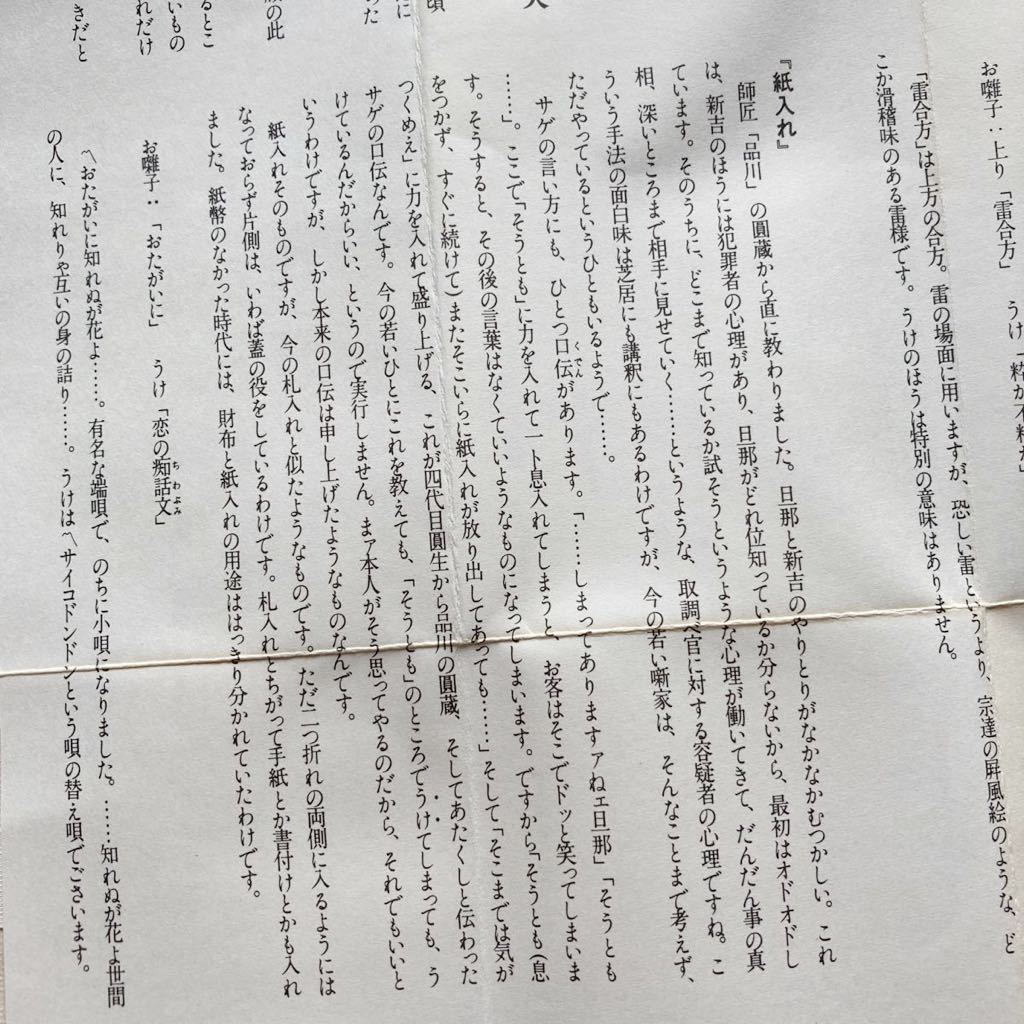 お囃子：上り「雷合方」　うけ「粋か不粋か」
「雷合方」は上方の合方。雷の場面に用いますが、恐しい雷というより、宗達の屛風絵のような、ど
こか滑稽味のある雷様です。うけのほうは特別の意味はありません。
『紙入れ』
師匠「品川」の圓蔵から直に教わりました。旦那と新吉のやりとりがなかなかむつかしい。これ
は、新吉のほうには犯罪者の心理があり、旦那がどれ位知っているか分らないから、最初はオドオドし
ています。そのうちに、どこまで知っているか試そうというような心理が働いてきて、だんだん事の真
相、深いところまで相手に見せていく……というような、取調べ官に対する容疑者の心理ですね。こ
ういう手法の面白味は芝居にも講釈にもあるわけですが、今の若い噺家は、そんなことまで考えず、
ただやっているというひともいるようで……。
サゲの言い方にも、ひとつ口伝（くでん）があります。「……しまってありますァねェ旦那」「そうとも
……」。ここで「そうとも」に力を入れて一ト息入れてしまうと、お客はそこでドッと笑ってしまいま
す。そうすると、その後の言葉はなくていいようなものになってしまいます。ですから「そうとも（息
をつかず、すぐに続けて）またそこいらに紙入れが放り出してあっても……」そして「そこまでは気が
つくめえ」に力を入れて盛り上げる、これが四代目圓生から品川の圓蔵、そしてあたくしと伝わった
サゲの口伝なんです。今の若いひとにこれを教えても、「そうとも」のところでうけてしまっても、う
けているんだからいい、というので実行しません。まァ本人がそう思ってやるのだから、それでもいいと
いうわけですが、しかし本来の口伝は申し上げたようなものなんです。
紙入れそのものですが、今の札入れと似たようなものです。ただ二つ折れの両側に入るようには
なっておらず片側は、いわば蓋の役をしているわけです。札入れとちがって手紙とか書付けとかも入れ
ました。紙幣のなかった時代には、財布と紙入れの用途ははっきり分かれていたわけです。
お囃子：「おたがいに」　うけ「恋の痴話文（ちわぶみ）」
〽おたがいに知れぬが花よ……。有名な端唄で、のちに小唄になりました。……知れぬが花よ世間
の人に、知れりゃ互いの身の詰り……。うけは〽サイコドンドンという唄の替え唄でございます。